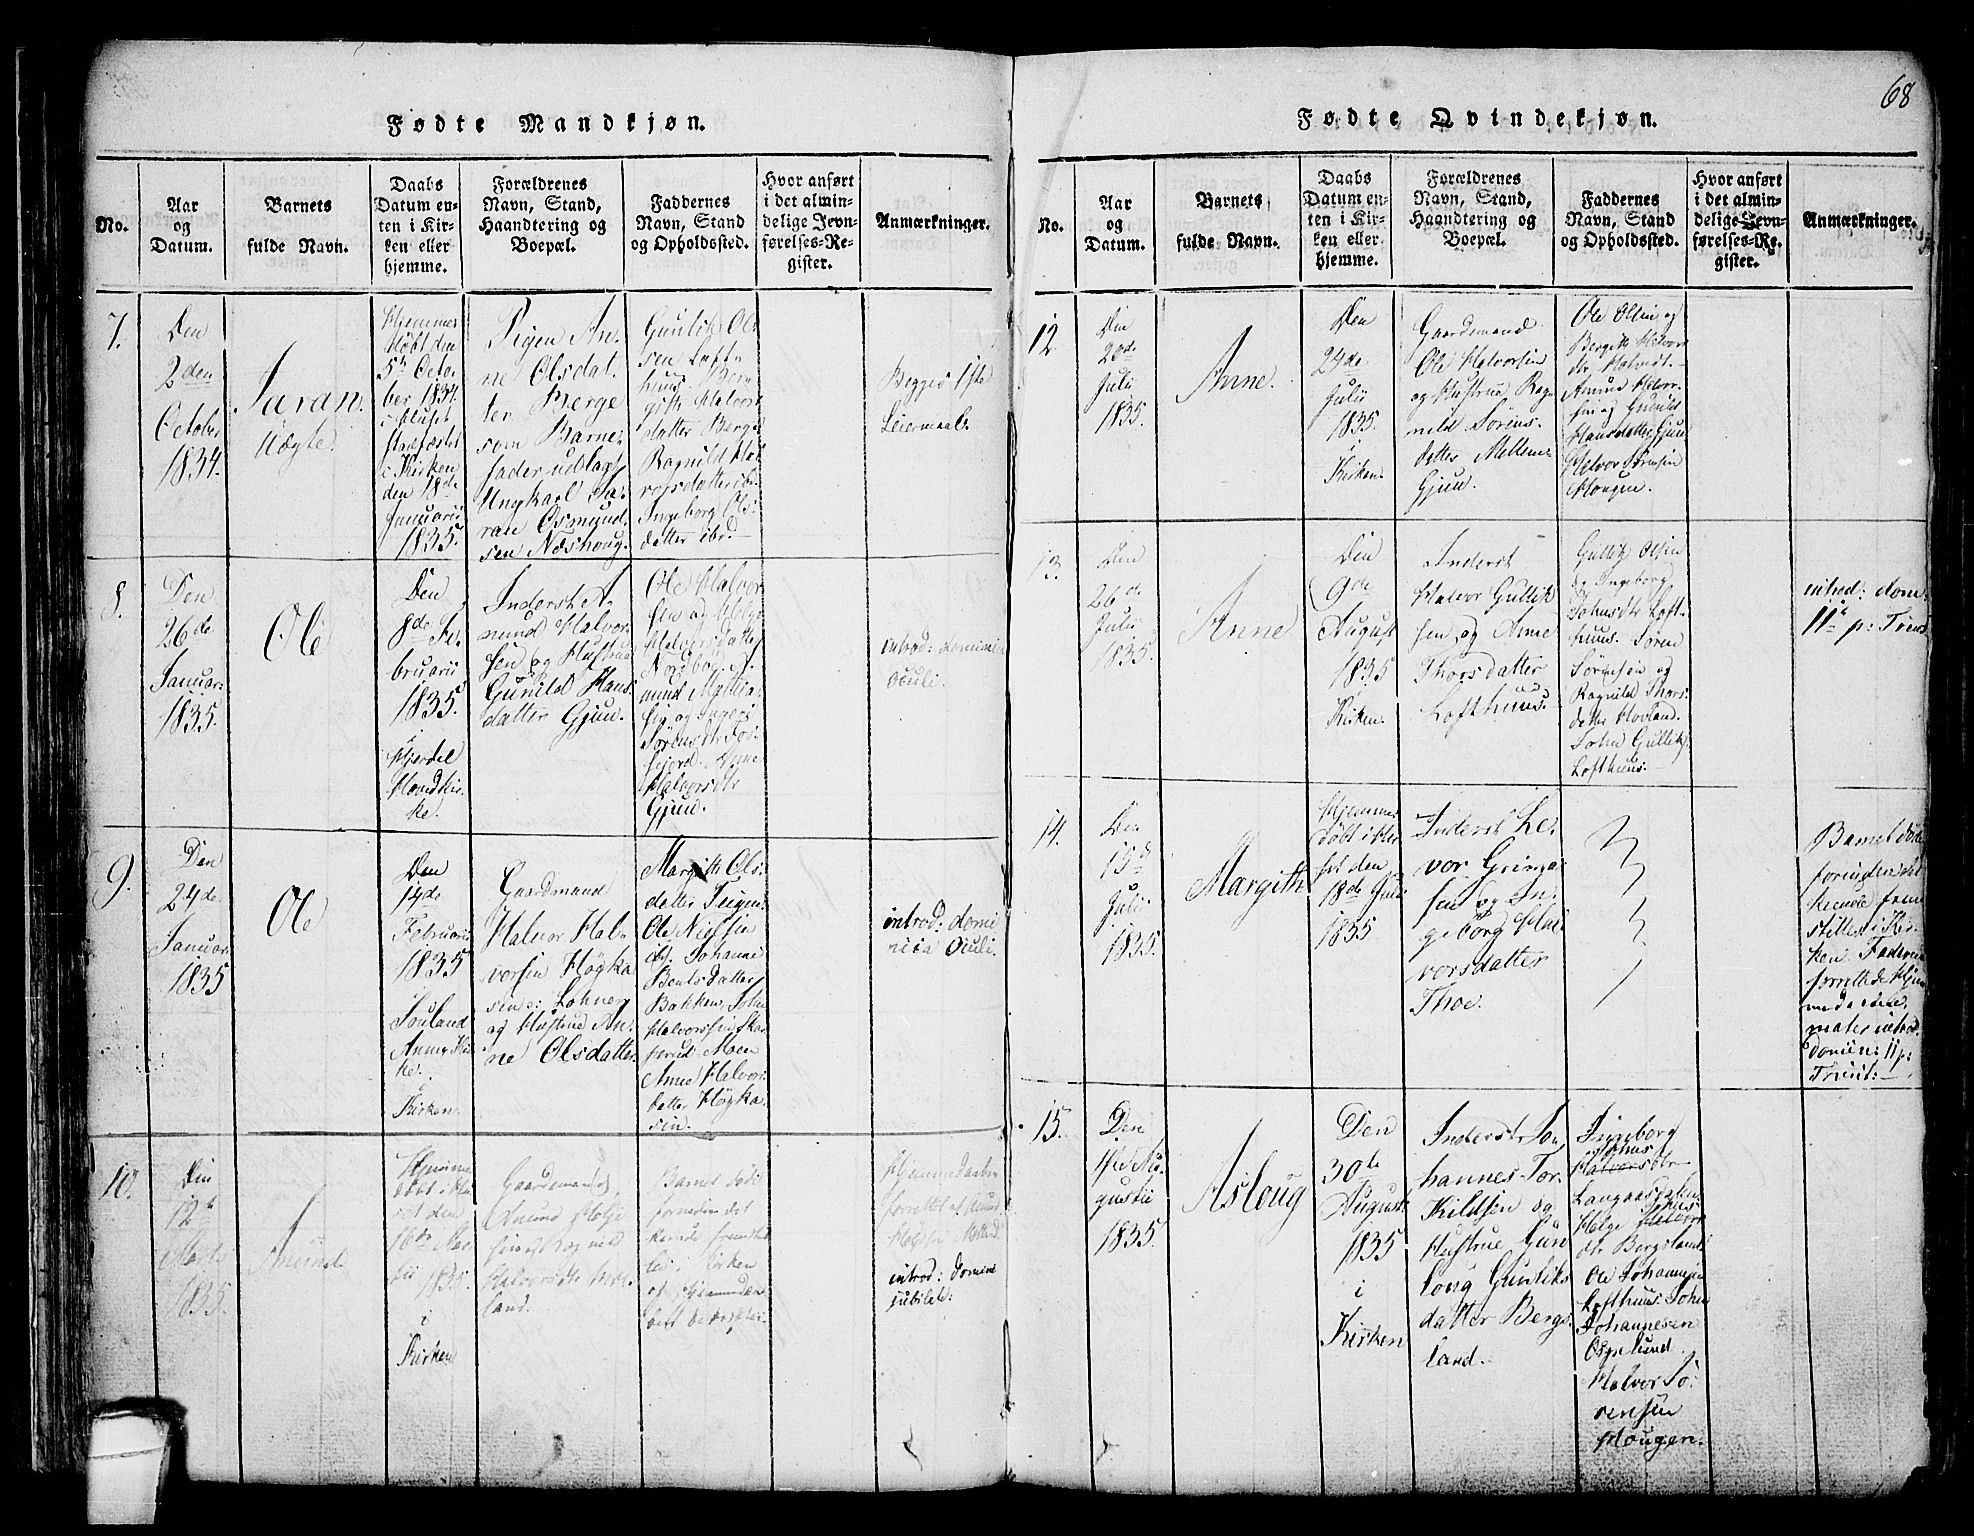 Fødte Mandkjøn.
No.
Aar
og
Datum.
Barnets
fulde Navn.
Daabs
Datum en-
ten i Kir-
ken eller
hjemme.
Forældrenes
Navn, Stand,
Haandtering og
Boepæl.
Faddernes
Navn, Stand
og Opholdssted.
Hvor anført
i det almin-
delige Jevn-
førelses-Re-
gister.
Anmærkninger.
7.
Den
2den
October
1834.
Saran
Uægte.
Hjemme
døbt den
5te Octo-
ber 1834.
i Huset
stadfæstet
i Kirken
den 18de
Januarii
1835.
Pigen An-
ne Olsdat-
ter Berge
som Barne-
fader udlagt
Ungkarl Sa-
ran Osmund-
sen Næshoug.
Gunlik Ol-
sen Loft-
huus. Ber-
gith Halvors
datter Berge
Ragnild Hal-
vorsdatter ib:
Ingeborg Ols-
datter ibd.
Begges 1ste
Leiermaal.
8.
Den
26de
Januar:
1835.
Ole
Den
8de Fe-
bruarii
1835.
i
Hjerdal
Hoved Kir-
ke.
Inderst A-
mund Halvor-
sen og Hustrue
Gunild Hans-
datter Gjuu.
Ole Halvor-
sen og Helge
Halvorsdatter
Nordbog. A-
mund Mathia-
sen og Ingeri
Sørensdtr Sø-
fiord. Anne
Halvorsdtr
Gjuu.
introd: domini
Oculi.
9.
Den
24de
Januari
1835
Ole
Den
14de
Februarii
1835
Souland
Annex Kir-
ke.
i
Kirken.
Gaardmand
Halvor Hal-
vorsen Høgka-
sin: Lohner
og Hustrue An-
ne Olsdatter.
Margith Ols-
datter Teigen
Ole Nielsen
ib. Johanne
Bentsdatter
Bakken. John
Halvorsen Ska-
perud Moen
Anne Halvors-
datter Høgka-
sin.
introd: domi
nica Oculi.
10.
Den
12te
Marts
1835
Amund
Hjemme
døbt i Hu-
set den
16de Mar-
tii
1835.
i
Kirken
Gaardemand
Amund Helge
sen Ragnild
Halvorsdtr
land.
Barnet døde
forinden det
kunde fremstil-
les i Kirken
Hjemmedaaben
forrettet af Amund
introd: domini
jubilate:
68
Fødte Qvindekjøn.
No.
Aar
og
Datum.
Barnets
fulde Navn.
Daabs
Datum en-
ten i Kir-
ken eller
hjemme.
Forældrenes
Navn, Stand,
Haandtering og
Boepæl.
Faddernes
Navn, Stand
og Opholdssted.
Hvor anført
i det almin-
delige Jevn-
førelses-Re-
gister.
Anmærkninger.
12
Den
20de
Julii
1835.
Anne.
Den
24de
Julii
1835.
i
Kirken.
Gaardmand
Ole Halvorsen
og Hustrue Rag-
nild Sørens-
datter Mellem-
Gjuu.
Ole Olsen og
Bergith Halvors
dtr Halvedt.
Amund Halvor-
sen og Gunild
Hansdatter Gjuu
Halvor Sørensen
Hougen.
13.
Den
26de
Julii
1835.
Anne
Den
9de
August
1835
i
Kirken.
Inderst
Halvor Gullik-
sen og Anne
Thorsdatter
Lofthuus.
Gullik Olsen
og Ingeborg
Johnsdtr Loft-
huus. Søren
Sørensen og
Ragnild Thors-
datter Hovland.
John Gulliks:
Lofthuus.
introd: dom:
11te p: Trinit
14.
Den
15de
Julii
1835.
Margith
Hjemme
døbt i Hu-
set den
18de Juli
1835
Inderst He-
vor Grims-
sen og In-
geborg Hal-
vorsdatter
Thoe.
Barnet døde
forinden det
kunde frem
stilles i Kir-
ken. Faderen
forrettede Hjem
medaaben.
mater introd
domin: 11 p:
Trinit:
15.
Den
1ste Au-
gustii
1835.
Asloug
Den
30te
August
1835
i
Kirken
Inderst Jo-
hannes Tor-
kildsen og
Hustrue Gun-
loug Gunliks
datter Bergs-
land.
Ingeborg
Johns
Halvorsdtr
Langaasdalen
Helge Halvors
dtr Bergsland
Ole Johannesen
Lofthuus. John
Johannesen
Espelund
Halvor Sø-
rensen
Hougen.